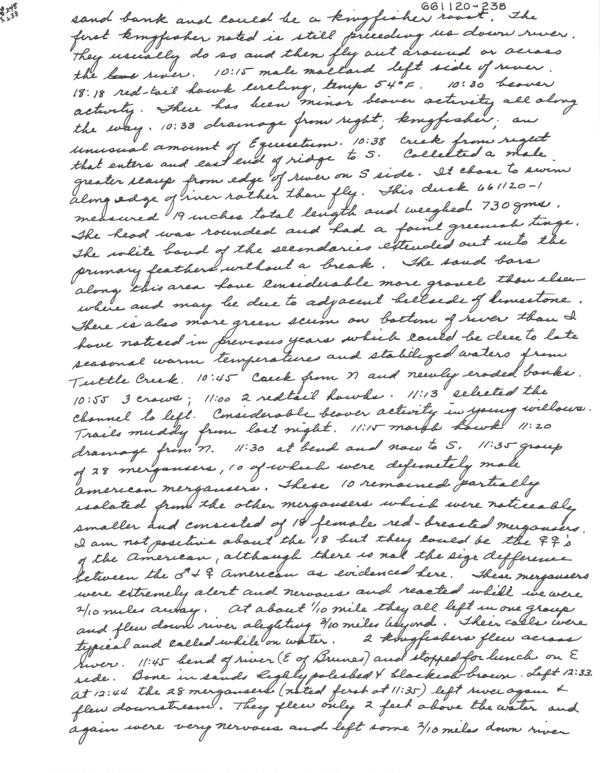 661120-238
sand bank and could be a kingfisher roost. The
first kingfisher noted is still preceding us down river.
They usually do so and then fly out around or across
the river. 10:15 male mallard left side of river.
18:18 red-tail hawk circling, temp 54°F. 10:30 beaver
activity. There has been minor beaver activity all along
the way. 10:33 drainage from right; kingfisher; an
unusual amount of Equisetum. 10:38 creek from right
that enters and east end of ridge to S. Collected a male
greater scaup from edge of river on S side. It chose to swim
along edge of river rather than fly. This duck 661120-1
measured 19 inches total length and weighed 730 gms.
The head was rounded and had a faint greenish tinge.
The white band of the secondaries extended out into the
primary feathers without a break. The sand bars
along this area have considerable more gravel than else-
where and may be due to adjacent hillside of limestone.
There is also more green scum on bottom of river than I
have noticed in previous years which could be due to late
seasonal warm temperature and stabilized waters from
Tuttle Creek. 10:45 Creek from N and newly eroded banks.
10:55 3 crows; 11:00 2 redtail hawks. 11:13 selected the
channel to left. Considerable beaver activity in young willows.
Trails muddy from last night. 11:15 marsh hawk 11:20
drainage from N. 11:30 at bend and now to S. 11:35 group
of 28 mergansers, 10 of which were definetely male
american mergansers. These 10 remained partially
isolated from the other mergansers which were noticeably
smaller and consisted of 18 female red-breasted mergansers.
I am not positive about the 18 but they could be the ♀♀'s
of the American, although there is not the size difference
between the ♂ & ♀ American as evidenced here. These mergansers
were extremely alert and nervous and reacted while we were
2/10 miles away. At about 1/10 mile they all left in one group
and flew down river alighting 2/10 miles beyond. Their calls were
typical and called while on water. 2 kingfishers flew across
river. 11:45 bend of river (E of Brunas) and stopped for lunch on E
side. Bone in sands highly polished & blackish brown. Left 12:33.
At 12:44 the 28 mergansers (noted first at 11:35) left river again &
flew downstream. They flew only 2 feet above the water and
again were very nervous and left some 2/10 miles down river